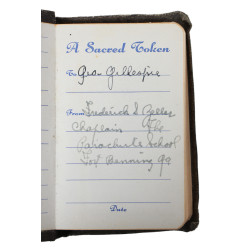 A Sacred Token
To Geo. Gillespie
From Frederick S.
Chaplain The
Parachute School
Fort Benning Ga
Date